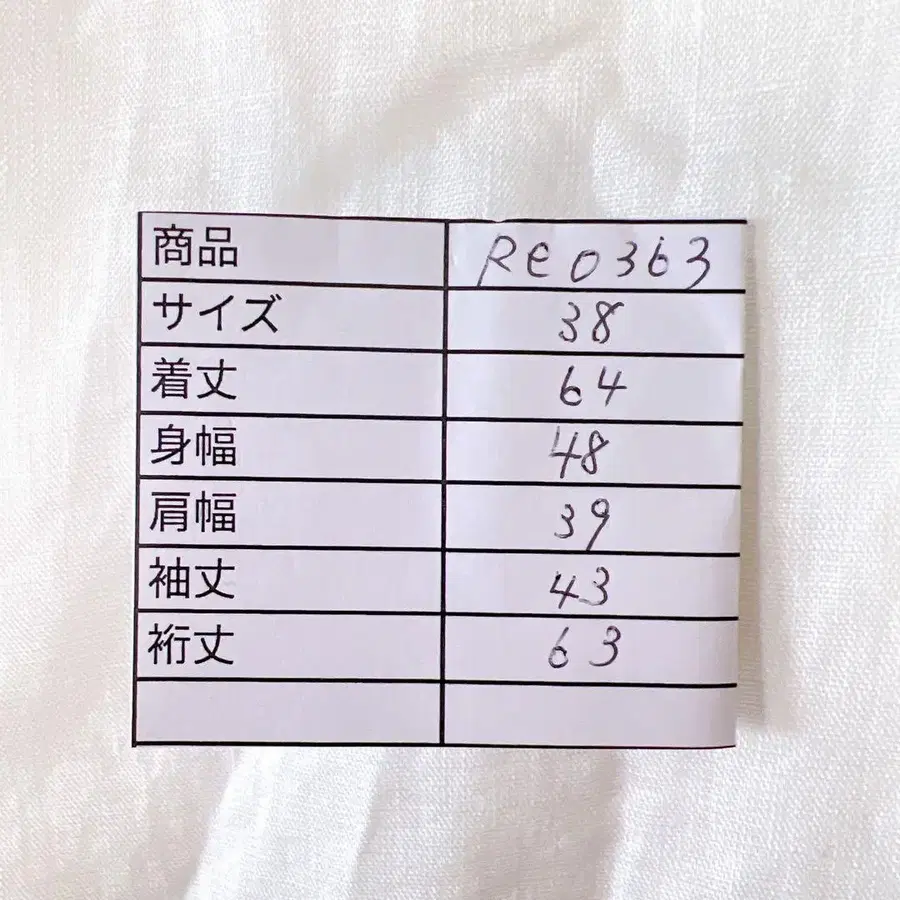 商品 Re0363
サイズ 38
着丈 64
身幅 48
肩幅 39
袖丈 43
裄丈 63